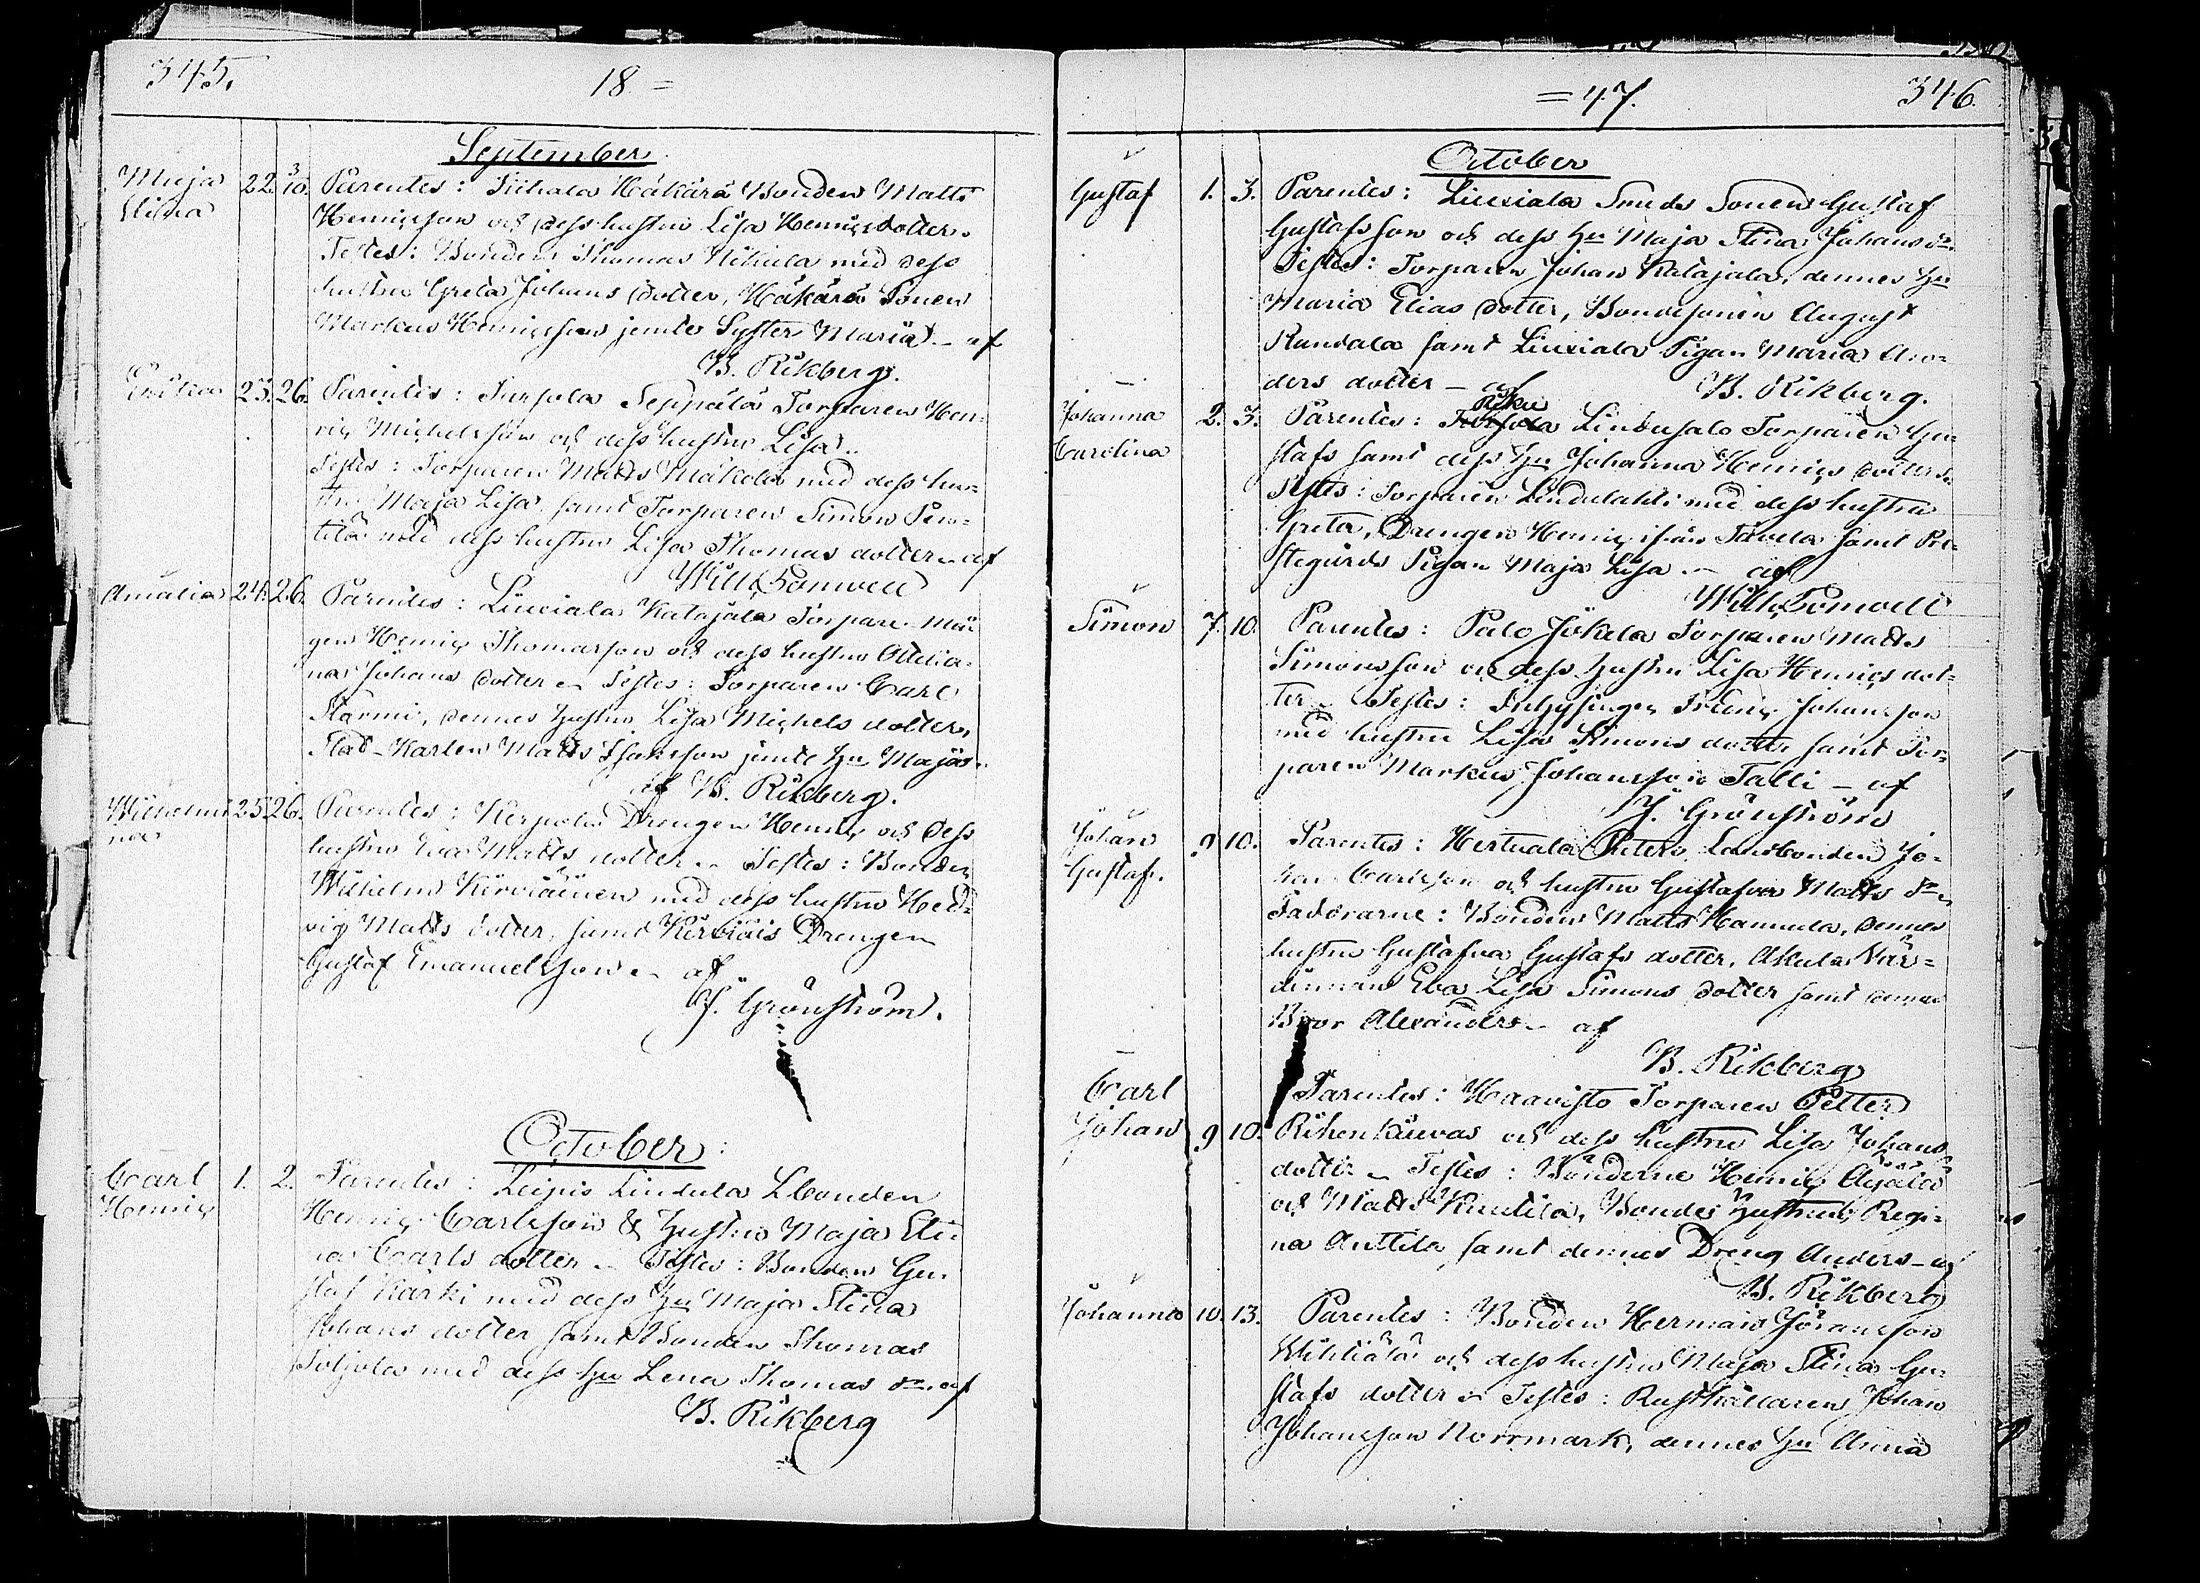 345.
18 =
September
Maja Stina 22. 3/10. Parentes: Sühala Häkärä Bonden Matts
Henricsson och dess hustru Lisa Henricsdotter.
Testes: Bonden Thomas Nikula med dess
hustru Greta Johans dotter, Häkärä Sonen
Markus Henricsson jemte Syster Maria - af
B. Rikberg.
Erika 23. 26. Parentes: Seppälä Torparen Hen-
ric Michelsson och dess hustru Lisa.
Testes: Torparen Matts Mäkelä med dess hu-
stru Maja Lisa, samt Torparen Simon Pen-
tilä med dess hustru Lisa Thomas dotter - af
Wilh. Bonwell
Amalia 24. 26. Parentes: Liuxiala Katajala Torpare-Må-
gen Henric Thomasson och dess hustru
na Johans dotter - Testes: Torparen Carl
dennes hustru Lisa Michels dotter,
Stad-Karlen Matts Isaksson jemte hu Maja
af B. Rikberg.
Wilhelmi-
na 25. 26. Parentes: Drengen Henric och dess
hustru Eva Matts dotter - Testes: Bonden
Wilhelm med dess hustru Hed-
vig Matts dotter, samt Drengen
Gustaf Emanuelsson - af
J. Grönström.
October:
Carl
Henric 1. 2. Parentes: Leipis Lindula Lbonden
Henric Carlsson & hustru Maja Sti-
na Carls dotter - Testes: Bonden Gu-
staf Kärki med dess hu Maja Stina
Johans dotter samt Bonden Thomas
med dess hu Lena Thomas dr. af
B. Rikberg
= 47.
346.
October
Gustaf 1. 3. Parentes: Liuxiala Smeds Sonen Gustaf
Gustafsson och dess hu Maja Stina Johans dr.
Testes: Torparen Johan Katajala, dennes hu
Maria Elias dotter, Bondesonen August
samt Liuxiala Pigan Maria An-
ders dotter - af B. Rikberg.
Johanna
Carolina 2. 3. Parentes: Lindusalo Torparen Gu-
stafs samt dess hu Johanna Henrics dotter.
Testes: Torparen Lindulahti med dess hustru
Greta, Drengen Henric ifrån samt Pre-
stegårds Pigan Maja Lisa - af
Wilh. Bonwell
Simon 7. 10. Parentes: Palo Jokela Torparen Matts
Simonsson och dess hustru Lisa Henrics dot-
ter - Testes: Johansson
med hustru Lisa Simons dotter samt Tor-
paren Markus Johansson Talli - af
J. Grönström
Johan
Gustaf. 9 10. Parentes: Hertuala Landbonden Jo-
han Carlsson och hustru Gustafva Matts dr.
Faddrarne: Bonden Matts Hannula, dennes
hustru Gustafva Gustafs dotter, Akula Vär-
dinnan Eva Lisa Simons dotter samt dennes
Bror Alexander - af
B. Rikberg
Carl
Johan 9 10. Parentes: Haavisto Torparen Petter
och dess hustru Lisa Johans
dotter - Testes: Bönderne Henric
och Matts Knutila, Bondes hustrun Regi-
na Anttila, samt dennes Dreng Anders - af
B. Rikberg
Johanna 10. 13. Parentes: Bonden Herman Johansson
och dess hustru Maja Stina Gu-
stafs dotter - Testes: Rusthållaren Johan
Johansson Norrmark, dennes hu Anna